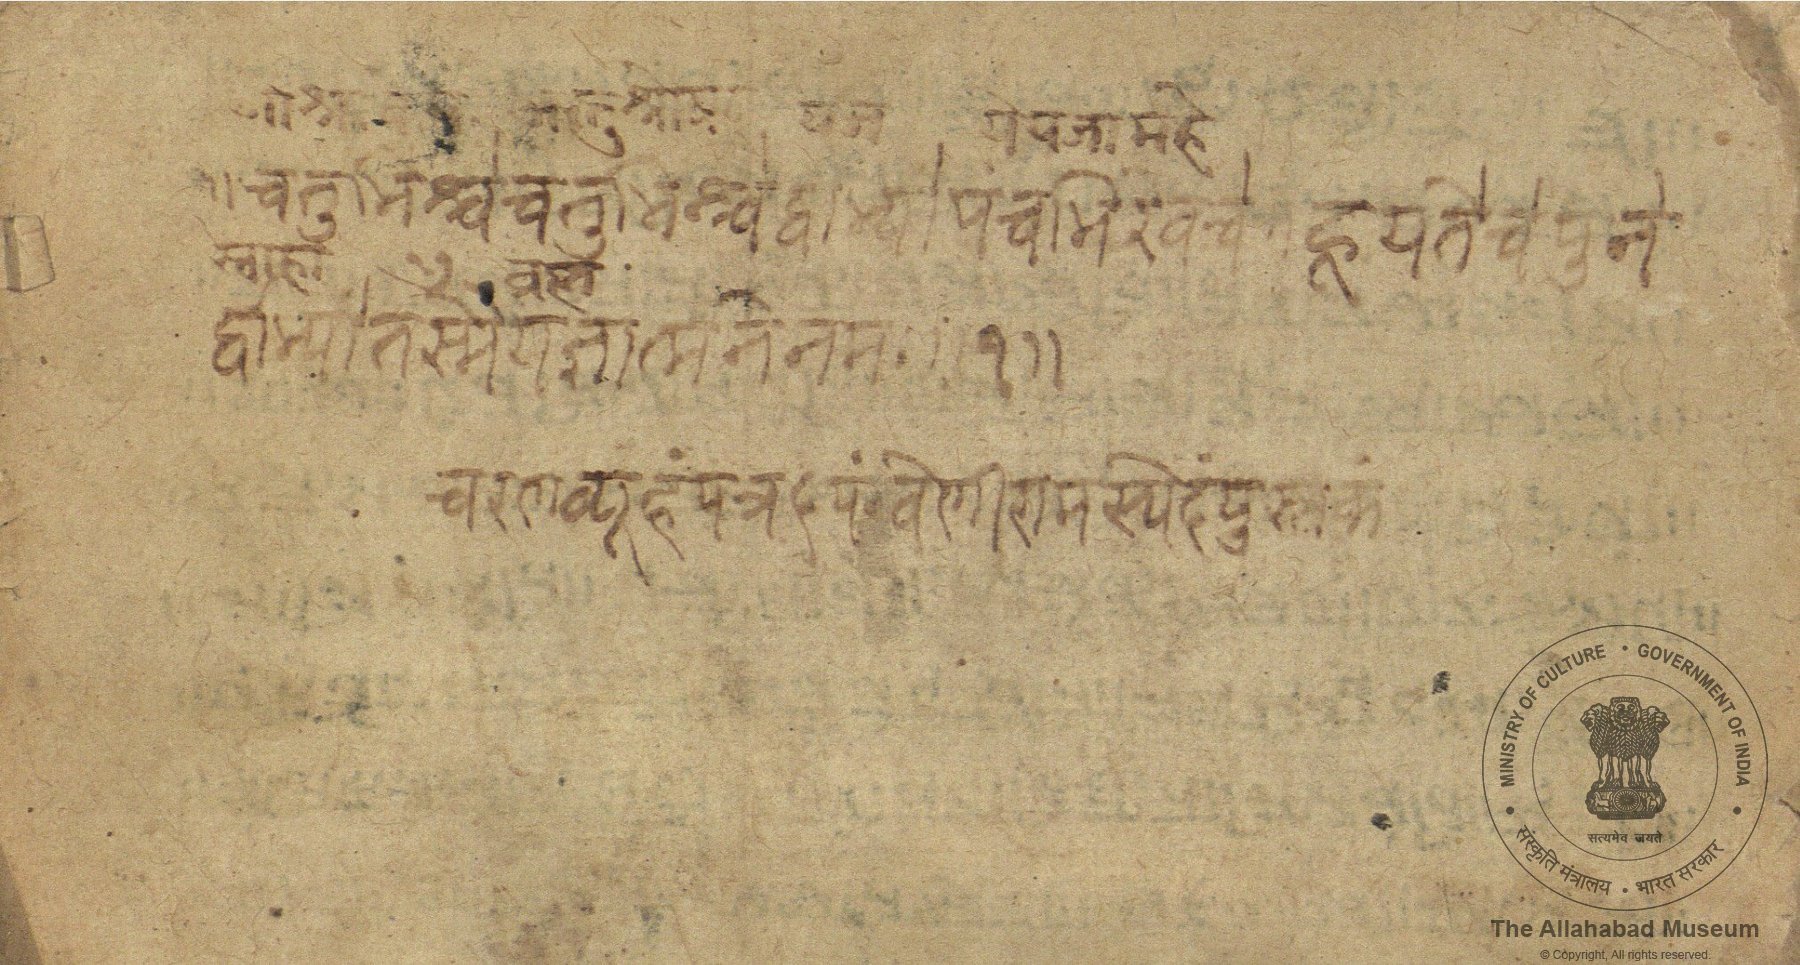 ओश्रावय अस्तुश्रौष यज येयजामहे
॥चतुर्भिश्चचतुर्भिश्चद्वाभ्यांपंचभिरेवच। हूयतेचपुन
द्वाभ्यांतस्मैयज्ञात्मनेनमः॥१॥
चरणव्यूहंपत्र६पं॰वेणीरामस्येदंपुस्तकं
MINISTRY OF CULTURE • GOVERNMENT OF INDIA
सत्यमेव जयते
संस्कृति मंत्रालय • भारत सरकार
The Allahabad Museum
© Copyright, All rights reserved.